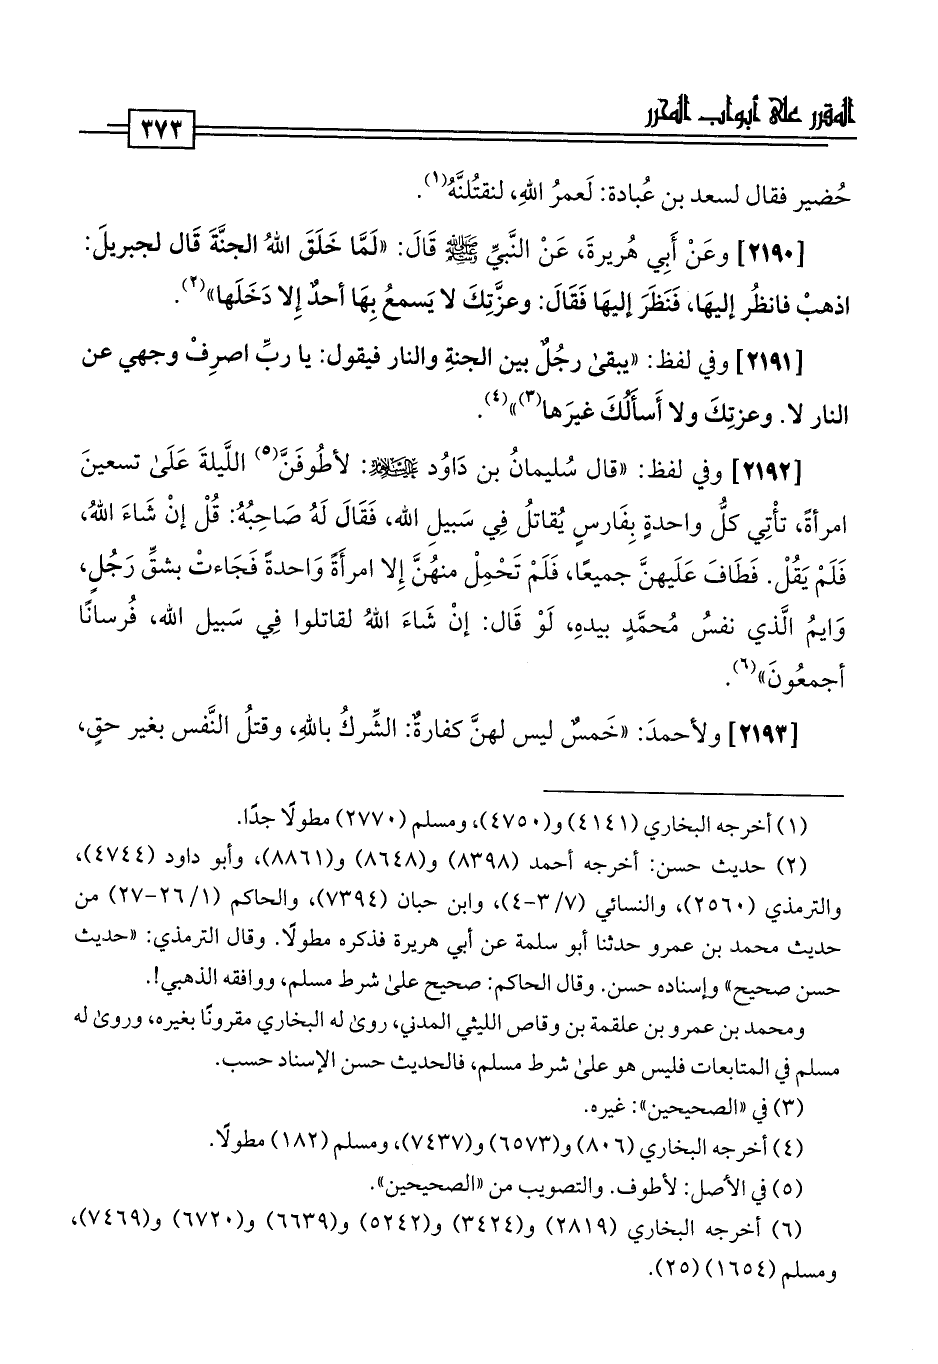 المقرر على أبواب المحرر
٣٧٣
حُضير فقال لسعد بن عُبادة: لَعمرُ اللهِ، لنقتُلنَّهُ(١).
[٢١٩٠] وعَنْ أَبي هُريرةَ، عَنْ النَّبيِّ ﷺ قَالَ: «لَمَّا خَلَقَ اللهُ الجنَّةَ قَال لجبريلَ:
اذهبْ فانظُر إليهَا، فَنَظَرَ إليهَا فَقَالَ: وعزَّتِكَ لا يَسمعُ بِهَا أحدٌ إلا دَخَلَها»(٢).
[٢١٩١] وفي لفظ: «يبقىٰ رجُلٌ بين الجنةِ والنار فيقول: يا ربِّ اصرِفْ وجهي عن
النار لا. وعزتِكَ ولا أَسأَلُكَ غيرَها(٣)»(٤).
[٢١٩٢] وفي لفظ: «قال سُليمانُ بن دَاوُد عليه السلام: لأطُوفَنَّ(٥) اللَّيلةَ عَلَىٰ تسعينَ
امرأةً، تأْتِي كلُّ واحدةٍ بِفَارسٍ يُقاتلُ فِي سَبيلِ الله، فَقَالَ لَهُ صَاحِبُهُ: قُلْ إنْ شَاءَ اللهُ،
فَلَمْ يَقُلْ. فَطَافَ عَلَيهنَّ جميعًا، فَلَمْ تَحْمِلْ منهُنَّ إلا امرأَةً وَاحدةً فَجَاءتْ بشقِّ رَجُلٍ،
وَايمُ الَّذي نفسُ مُحمَّدٍ بيدهِ، لَوْ قَال: إنْ شَاءَ اللهُ لقاتلوا فِي سَبيل الله، فُرسانًا
أجمعُونَ»(٦).
[٢١٩٣] ولأحمدَ: «خَمسٌ ليس لهنَّ كفارةٌ: الشِّركُ باللهِ، وقتلُ النَّفس بغير حقٍ،
(١) أخرجه البخاري (٤١٤١) و(٤٧٥٠)، ومسلم (٢٧٧٠) مطولًا جدًا.
(٢) حديث حسن: أخرجه أحمد (٨٣٩٨) و(٨٦٤٨) و(٨٨٦١)، وأبو داود (٤٧٤٤)،
والترمذي (٢٥٦٠)، والنسائي (٧/ ٣-٤)، وابن حبان (٧٣٩٤)، والحاكم (١/ ٢٦-٢٧) من
حديث محمد بن عمرو حدثنا أبو سلمة عن أبي هريرة فذكره مطولًا. وقال الترمذي: «حديث
حسن صحيح» وإسناده حسن. وقال الحاكم: صحيح علىٰ شرط مسلم، ووافقه الذهبي!.
ومحمد بن عمرو بن علقمة بن وقاص الليثي المدني، روىٰ له البخاري مقرونًا بغيره، وروىٰ له
مسلم في المتابعات فليس هو علىٰ شرط مسلم، فالحديث حسن الإسناد حسب.
(٣) في «الصحيحين»: غيره.
(٤) أخرجه البخاري (٨٠٦) و(٦٥٧٣) و(٧٤٣٧)، ومسلم (١٨٢) مطولًا.
(٥) في الأصل: لأطوف. والتصويب من «الصحيحين».
(٦) أخرجه البخاري (٢٨١٩) و(٣٤٢٤) و(٥٢٤٢) و(٦٦٣٩) و(٦٧٢٠) و(٧٤٦٩)،
ومسلم (١٦٥٤) (٢٥).